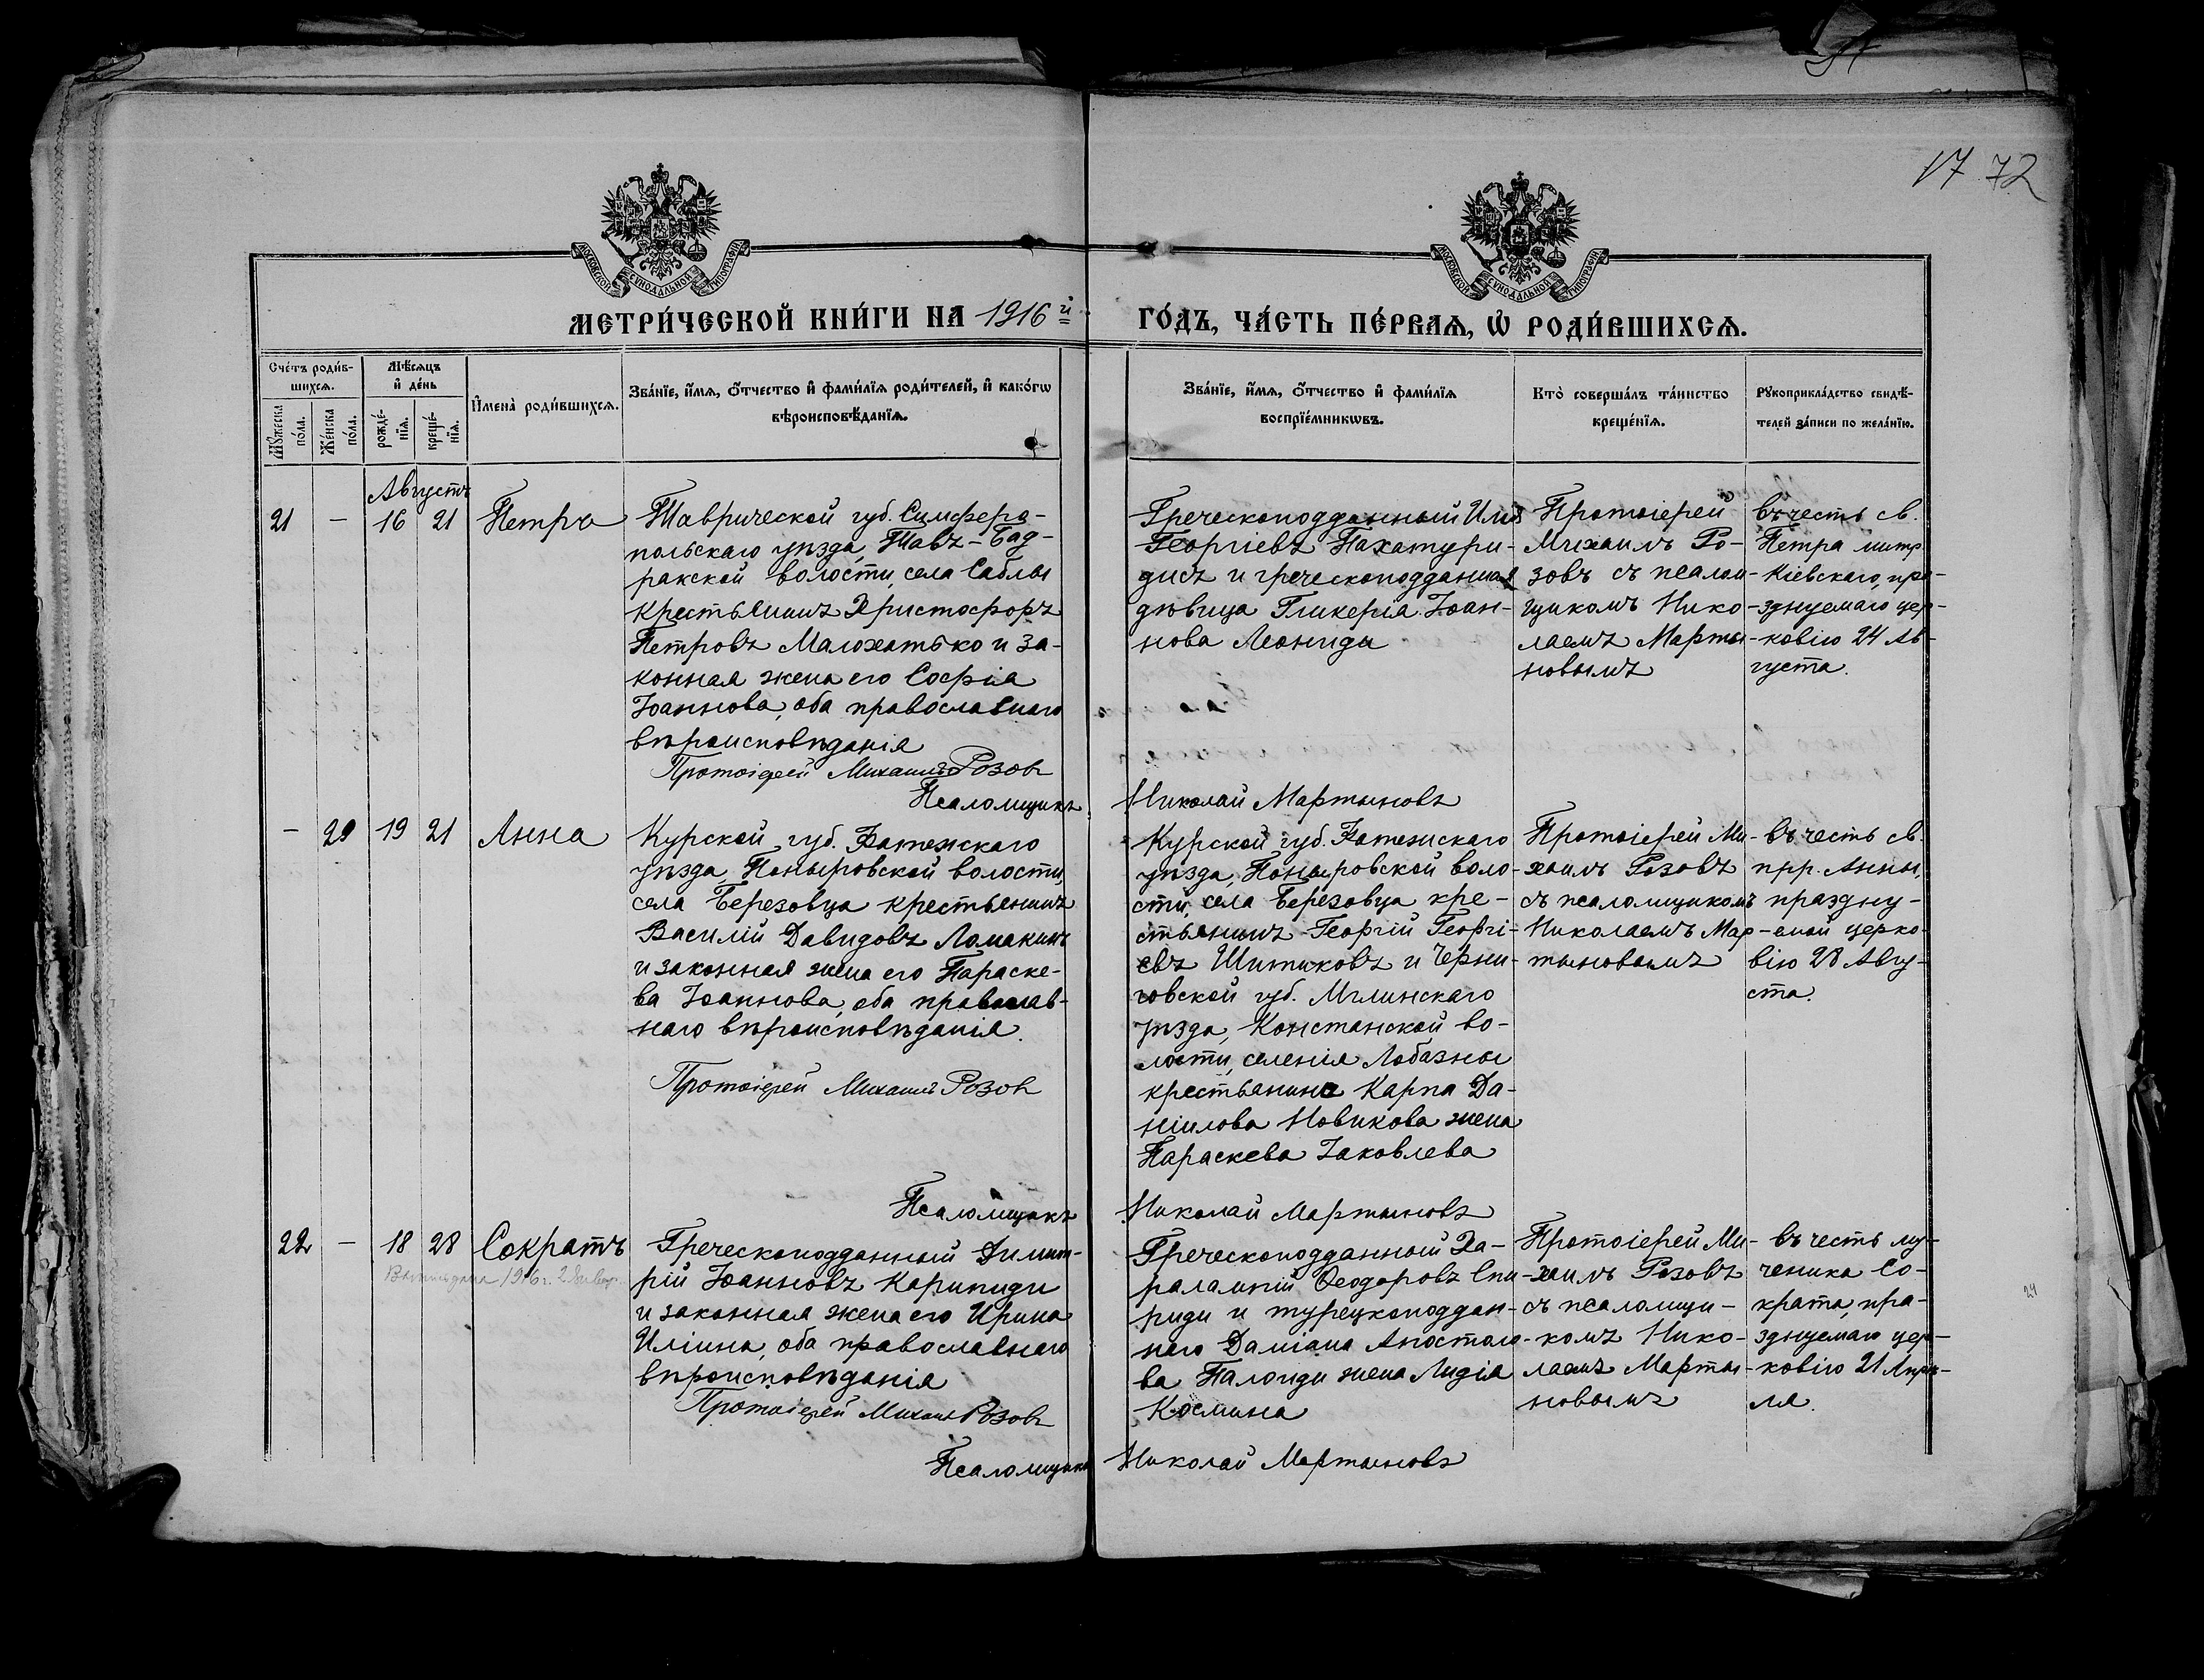 17 72
МОСКОВСКОЙ СѴНОДАЛЬНОЙ ТИПОГРАФІИ
МОСКОВСКОЙ СѴНОДАЛЬНОЙ ТИПОГРАФІИ
МЕТРИ́ЧЕСКОЙ КНИ́ГИ НА 1916й
ГО́ДЪ, ЧА́СТЬ ПЕ́РВАѦ, Ѡ҆ РОДИ́ВШИХСѦ.
Сче́тъ роди́в-
шихсѧ.
Мꙋ́жеска
по́ла.
Же́нска
по́ла.
Мѣ́сѧцъ
и҆ де́нь
рожде́-
нїѧ.
креще́-
нїѧ.
И҆мена̀ роди́вшихсѧ.
Зва́нїе, и҆́мѧ, ѻ҆́тчество и҆ фами́лїѧ роди́телей, и҆ како́гѡ
вѣроисповѣ́данїѧ.
Зва́нїе, и҆́мѧ, ѻ҆́тчество и҆ фами́лїѧ
воспрїе́мникѡвъ.
Кто̀ соверша́лъ та́инство
креще́нїѧ.
Рꙋкоприкла́дство свидѣ́-
телей за́писи по жела́нїю.
Августъ
21 — 16 21 Петръ
Таврической губ. Симферо-
польскаго уѣзда, Тавъ-Бад-
ракской волости, села Саблы
крестьянинъ Христофоръ
Петровъ Малохатько и за-
конная жена его Софія
Іоаннова, оба православнаго
вѣроисповѣданія
Протоіерей Михаилъ Розовъ
Псаломщикъ Николай Мартыновъ
Греческоподданный Илія
Георгіевъ Пахатури-
дисъ и греческоподданная
дѣвица Гликерія Іоан-
нова Леониди
Протоіерей
Михаилъ Ро-
зовъ съ псалом-
щикомъ Нико-
лаемъ Марты-
новымъ
въ честь св.
Петра митр.
Кіевскаго, пра-
зднуемаго цер-
ковію 24 Ав-
густа.
— 20 19 21 Анна
Курской губ. Фатежскаго
уѣзда, Поныровской волости,
села Березовца крестьянинъ
Василій Давидовъ Ломакинъ
и законная жена его Параске-
ва Іоаннова, оба православ-
наго вѣроисповѣданія.
Протоіерей Михаилъ Розовъ
Псаломщикъ Николай Мартыновъ
Курской губ. Фатежскаго
уѣзда, Поныровской воло-
сти, села Березовца кре-
стьянинъ Георгій Георгі-
евъ Шитиковъ и Черни-
говской губ. Мглинскаго
уѣзда, Констанской во-
лости, селенія Лобазны
крестьянина Карпа Да-
ніилова Новикова жена
Параскева Іаковлева
Протоіерей Ми-
хаилъ Розовъ
съ псаломщикомъ
Николаемъ Мар-
тыновымъ
въ честь св.
прр. Анны,
праздну-
емой церко-
вію 28 Авгу-
ста.
22 — 18 28 Сократъ
1916 г.
Греческоподданный Димит-
рій Іоанновъ Карипиди
и законная жена его Ирина
Иліина, оба православнаго
вѣроисповѣданія
Протоіерей Михаилъ Розовъ
Псаломщикъ Николай Мартыновъ
Греческоподданный Ха-
ралампій Ѳеодоровъ Спи-
риди и турецкоподдан-
наго Даміана Апостоло-
ва Палоиди жена Лидія
Космина
Протоіерей Ми-
хаилъ Розовъ
съ псаломщи-
комъ Нико-
лаемъ Марты-
новымъ
въ честь му-
ченика Со-
крата, пра-
зднуемаго цер-
ковію 21 Апрѣ-
ля.
24